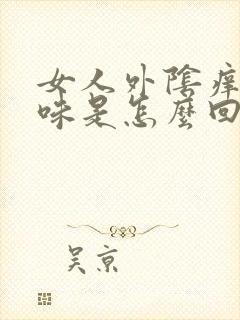 女人外陰癢
味是怎麼回
吴京